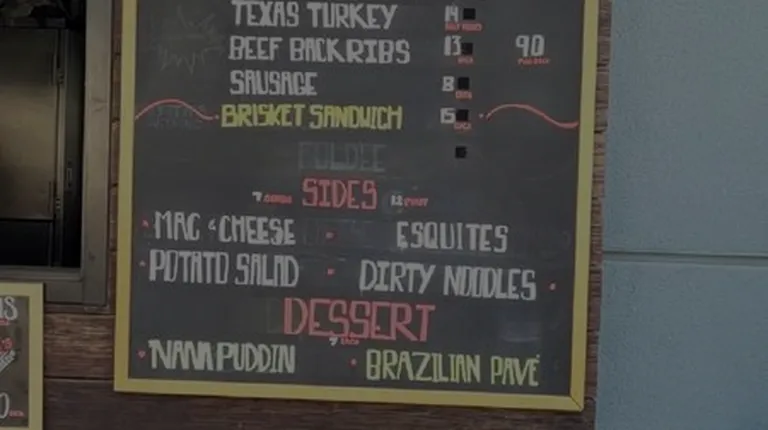 TEXAS TURKEY 14
BEEF BACK RIBS 13 90
SAUSAGE 8
BRISKET SANDWICH 15
7 SIDES 12
MAC & CHEESE • ESQUITES
POTATO SALAD • DIRTY NOODLES
DESSERT
7
NANA PUDDIN • BRAZILIAN PAVÉ